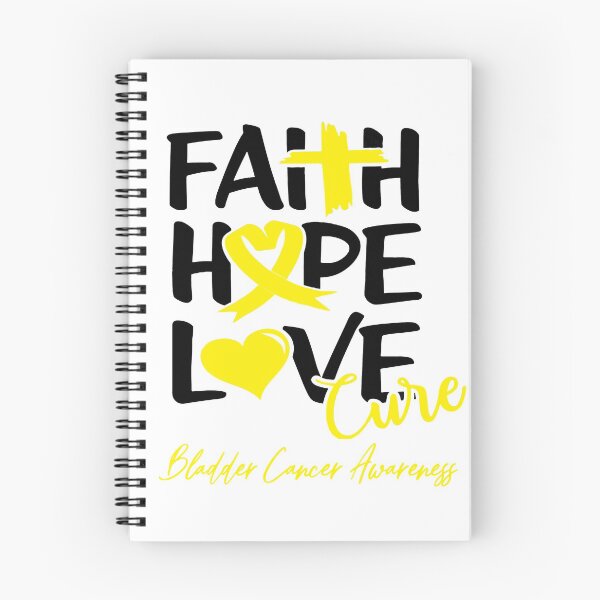 FAITH
HOPE
LOVE
Cure
Bladder Cancer Awareness